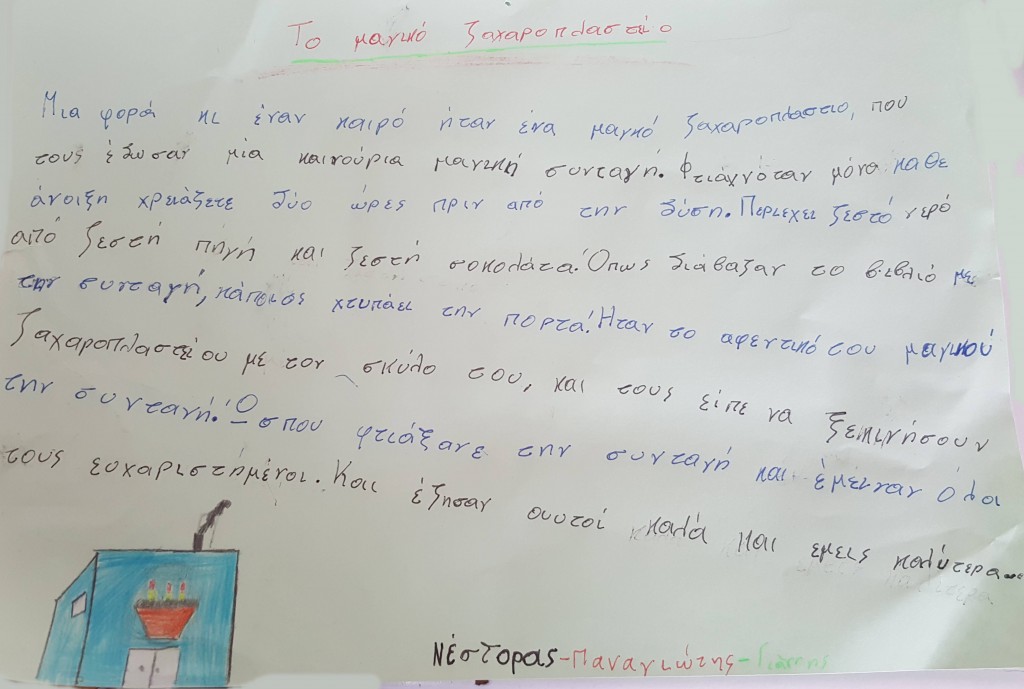 Το μαγικό ζαχαροπλαστείο
Μια φορά κι έναν καιρό ήταν ένα μαγικό ζαχαροπλαστειο, που
τους έδωσαν μία καινούρια μαγική συνταγή. Φτιάχνόταν μόνο καθε
άνοιξη χρειάζετε δύο ώρες πριν από την δύση. Περιεχει ζεστό νερό
από ζεστή πήγή και ζεστή σοκολάτα. Όπως διάβαζαν το βιβλιό με
την συνταγή, κάποιος χτυπάει την πορτα! Ήταν το αφεντικό του μαγικού
ζαχαροπλαστείου με τον σκύλο του, και τους είπε να ξεκινήσουν
την συνταγή. Ώσπου φτιάξανε την συνταγή και έμειναν όλοι
τους ευχαριστημένοι. Και έζησαν αυτοί καλά και εμεις καλύτερα...
Νέστορας-Παναγιώτης-Γιάννης